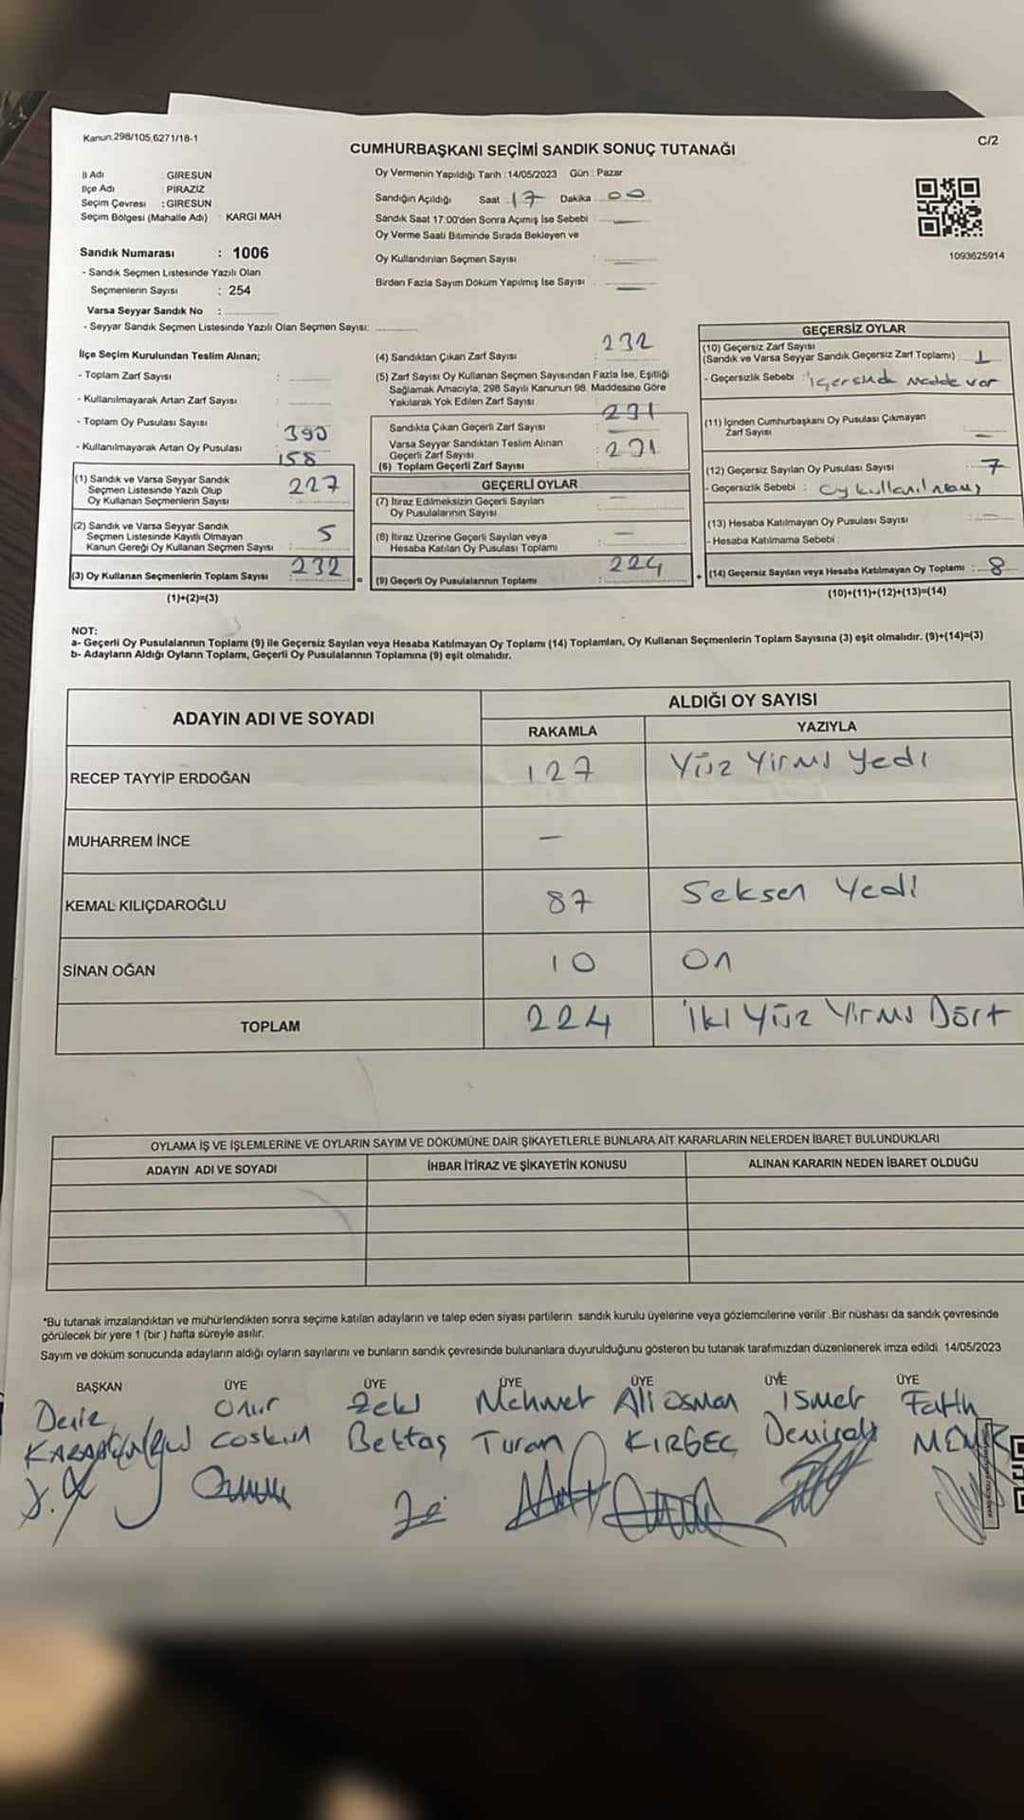 Kanun.298/105,6271/18-1
C/2
CUMHURBAŞKANI SEÇİMİ SANDIK SONUÇ TUTANAĞI
İl Adı : GİRESUN
İlçe Adı : PİRAZİZ
Seçim Çevresi : GİRESUN
Seçim Bölgesi (Mahalle Adı) : KARGI MAH
Sandık Numarası : 1006
- Sandık Seçmen Listesinde Yazılı Olan
Seçmenlerin Sayısı : 254
Varsa Seyyar Sandık No :
- Seyyar Sandık Seçmen Listesinde Yazılı Olan Seçmen Sayısı:
Oy Vermenin Yapıldığı Tarih : 14/05/2023 Gün : Pazar
Sandığın Açıldığı Saat 17 Dakika 00
Sandık Saat 17:00'den Sonra Açımış İse Sebebi :
Oy Verme Saati Bitiminde Sırada Bekleyen ve
Oy Kullandırılan Seçmen Sayısı :
Birden Fazla Sayım Döküm Yapılmış İse Sayısı :
1093625914
İlçe Seçim Kurulundan Teslim Alınan;
- Toplam Zarf Sayısı :
- Kullanılmayarak Artan Zarf Sayısı :
- Toplam Oy Pusulası Sayısı : 390
- Kullanılmayarak Artan Oy Pusulası : 158
(1) Sandık ve Varsa Seyyar Sandık
Seçmen Listesinde Yazılı Olup
Oy Kullanan Seçmenlerin Sayısı 227
(2) Sandık ve Varsa Seyyar Sandık
Seçmen Listesinde Kayıtlı Olmayan
Kanun Gereği Oy Kullanan Seçmen Sayısı 5
(3) Oy Kullanan Seçmenlerin Toplam Sayısı 232
(1)+(2)=(3)
(4) Sandıktan Çıkan Zarf Sayısı : 232
(5) Zarf Sayısı Oy Kullanan Seçmen Sayısından Fazla İse, Eşitliği
Sağlamak Amacıyla, 298 Sayılı Kanunun 98. Maddesine Göre
Yakılarak Yok Edilen Zarf Sayısı
Sandıkta Çıkan Geçerli Zarf Sayısı : 231
Varsa Seyyar Sandıktan Teslim Alınan
Geçerli Zarf Sayısı
(6) Toplam Geçerli Zarf Sayısı : 231
GEÇERLİ OYLAR
(7) İtiraz Edilmeksizin Geçerli Sayılan
Oy Pusulalarının Sayısı
(8) İtiraz Üzerine Geçerli Sayılan veya
Hesaba Katılan Oy Pusulası Toplamı
(9) Geçerli Oy Pusulalarının Toplamı : 224
GEÇERSİZ OYLAR
(10) Geçersiz Zarf Sayısı
(Sandık ve Varsa Seyyar Sandık Geçersiz Zarf Toplamı) 1
- Geçersizlik Sebebi : içersinde madde var
(11) İçinden Cumhurbaşkanı Oy Pusulası Çıkmayan
Zarf Sayısı
(12) Geçersiz Sayılan Oy Pusulası Sayısı : 7
- Geçersizlik Sebebi : oy kullanılmamış
(13) Hesaba Katılmayan Oy Pusulası Sayısı :
- Hesaba Katılmama Sebebi :
(14) Geçersiz Sayılan veya Hesaba Katılmayan Oy Toplamı : 8
(10)+(11)+(12)+(13)=(14)
NOT:
a- Geçerli Oy Pusulalarının Toplamı (9) ile Geçersiz Sayılan veya Hesaba Katılmayan Oy Toplamı (14) Toplamları, Oy Kullanan Seçmenlerin Toplam Sayısına (3) eşit olmalıdır. (9)+(14)=(3)
b- Adayların Aldığı Oyların Toplamı, Geçerli Oy Pusulalarının Toplamına (9) eşit olmalıdır.
ADAYIN ADI VE SOYADI
ALDIĞI OY SAYISI
RAKAMLA YAZIYLA
RECEP TAYYİP ERDOĞAN 127 Yüz Yirmi Yedi
MUHARREM İNCE —
KEMAL KILIÇDAROĞLU 87 Seksen Yedi
SİNAN OĞAN 10 On
TOPLAM 224 İki Yüz Yirmi Dört
OYLAMA İŞ VE İŞLEMLERİNE VE OYLARIN SAYIM VE DÖKÜMÜNE DAİR ŞİKAYETLERLE BUNLARA AİT KARARLARIN NELERDEN İBARET BULUNDUKLARI
ADAYIN ADI VE SOYADI İHBAR İTİRAZ VE ŞİKAYETİN KONUSU ALINAN KARARIN NEDEN İBARET OLDUĞU
*Bu tutanak imzalandıktan ve mühürlendikten sonra seçime katılan adayların ve talep eden siyasi partilerin sandık kurulu üyelerine veya gözlemcilerine verilir. Bir nüshası da sandık çevresinde
görülecek bir yere 1 (bir) hafta süreyle asılır.
Sayım ve döküm sonucunda adayların aldığı oyların sayılarını ve bunların sandık çevresinde bulunanlara duyurulduğunu gösteren bu tutanak tarafımızdan düzenlenerek imza edildi. 14/05/2023
BAŞKAN ÜYE ÜYE ÜYE ÜYE ÜYE ÜYE
Onur Zeki Mehmet Ali Osman İsmet Fatih
Coskun Bektaş Turan KIRGEÇ